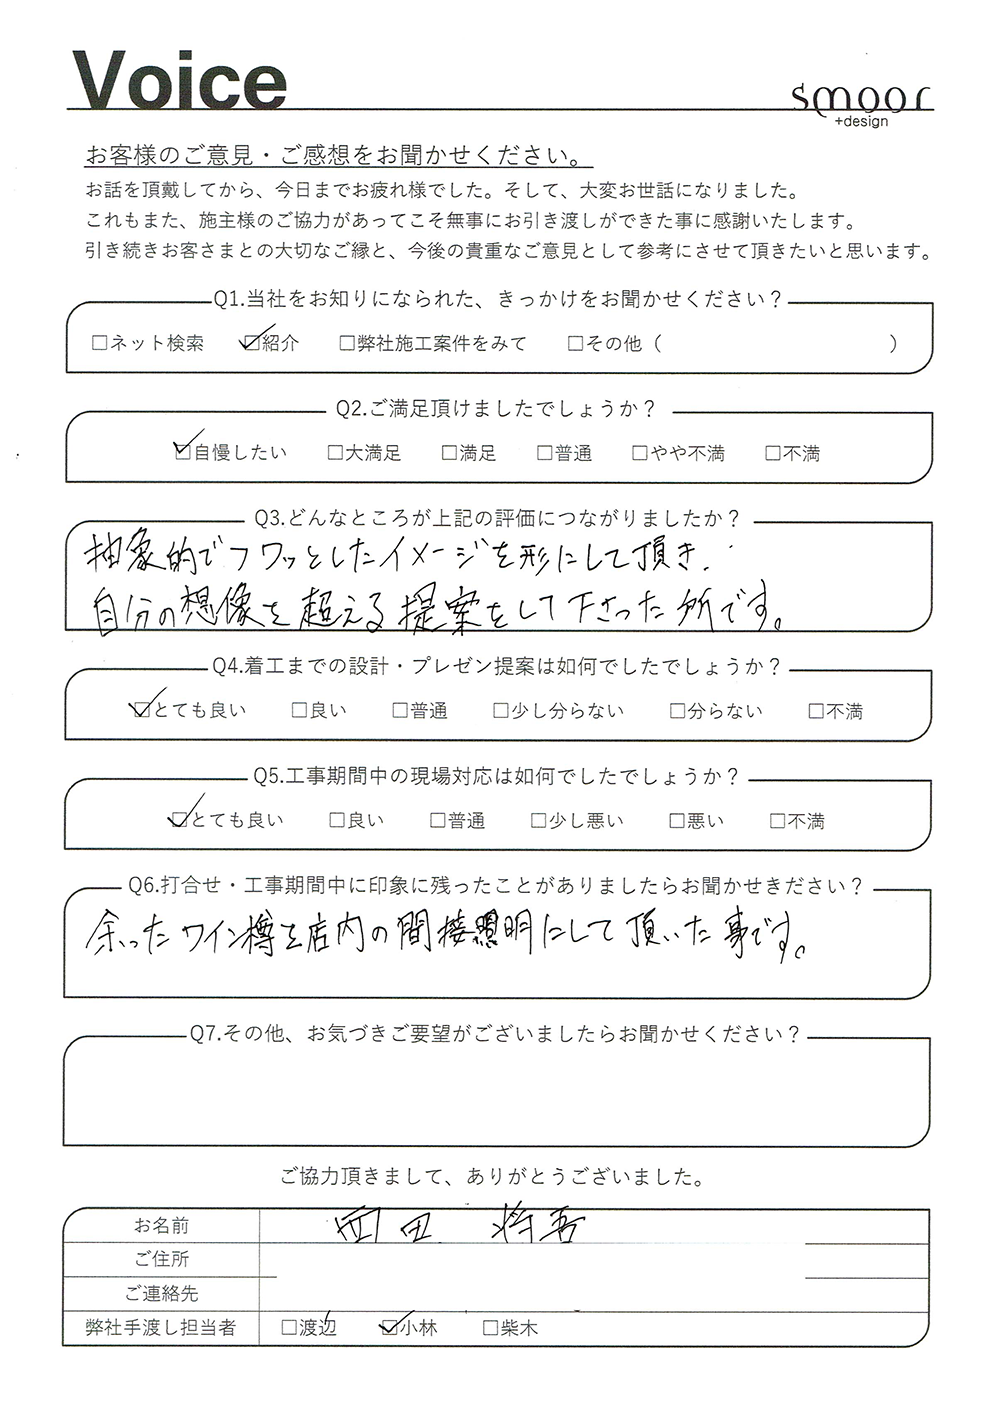 Voice
smoor
+design
お客様のご意見・ご感想をお聞かせください。
お話を頂戴してから、今日までお疲れ様でした。そして、大変お世話になりました。
これもまた、施主様のご協力があってこそ無事にお引き渡しができた事に感謝いたします。
引き続きお客さまとの大切なご縁と、今後の貴重なご意見として参考にさせて頂きたいと思います。
Q1.当社をお知りになられた、きっかけをお聞かせください？
□ネット検索 ☑紹介 □弊社施工案件をみて □その他（ ）
Q2.ご満足頂けましたでしょうか？
☑自慢したい □大満足 □満足 □普通 □やや不満 □不満
Q3.どんなところが上記の評価につながりましたか？
抽象的でフワッとしたイメージを形にして頂き、
自分の想像を超える提案をして下さった所です。
Q4.着工までの設計・プレゼン提案は如何でしたでしょうか？
☑とても良い □良い □普通 □少し分らない □分らない □不満
Q5.工事期間中の現場対応は如何でしたでしょうか？
☑とても良い □良い □普通 □少し悪い □悪い □不満
Q6.打合せ・工事期間中に印象に残ったことがありましたらお聞かせきださい？
余ったワイン樽を店内の間接照明にして頂いた事です。
Q7.その他、お気づきご要望がございましたらお聞かせください？
ご協力頂きまして、ありがとうございました。
お名前 岡田 将吾
ご住所
ご連絡先
弊社手渡し担当者 □渡辺 ☑小林 □柴木